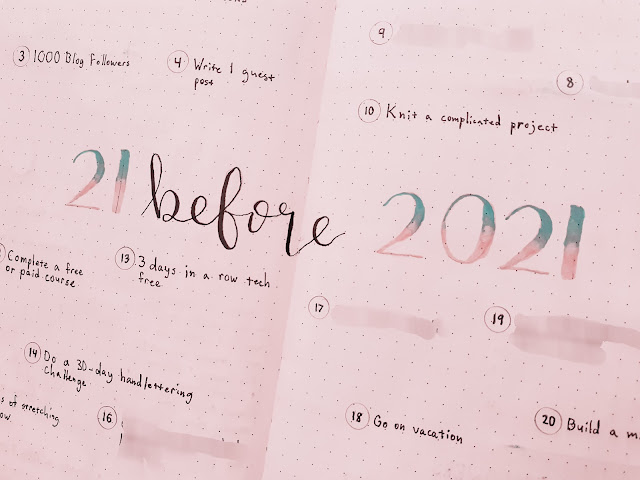 3 1000 Blog Followers
4 Write 1 guest
post
9
8
10 Knit a complicated project
21 before 2021
Complete a free
or paid course
13 3 days in a row tech
free
17
19
14 Do a 30-day handlettering
challenge
of stretching
16
18 Go on vacation
20 Build a